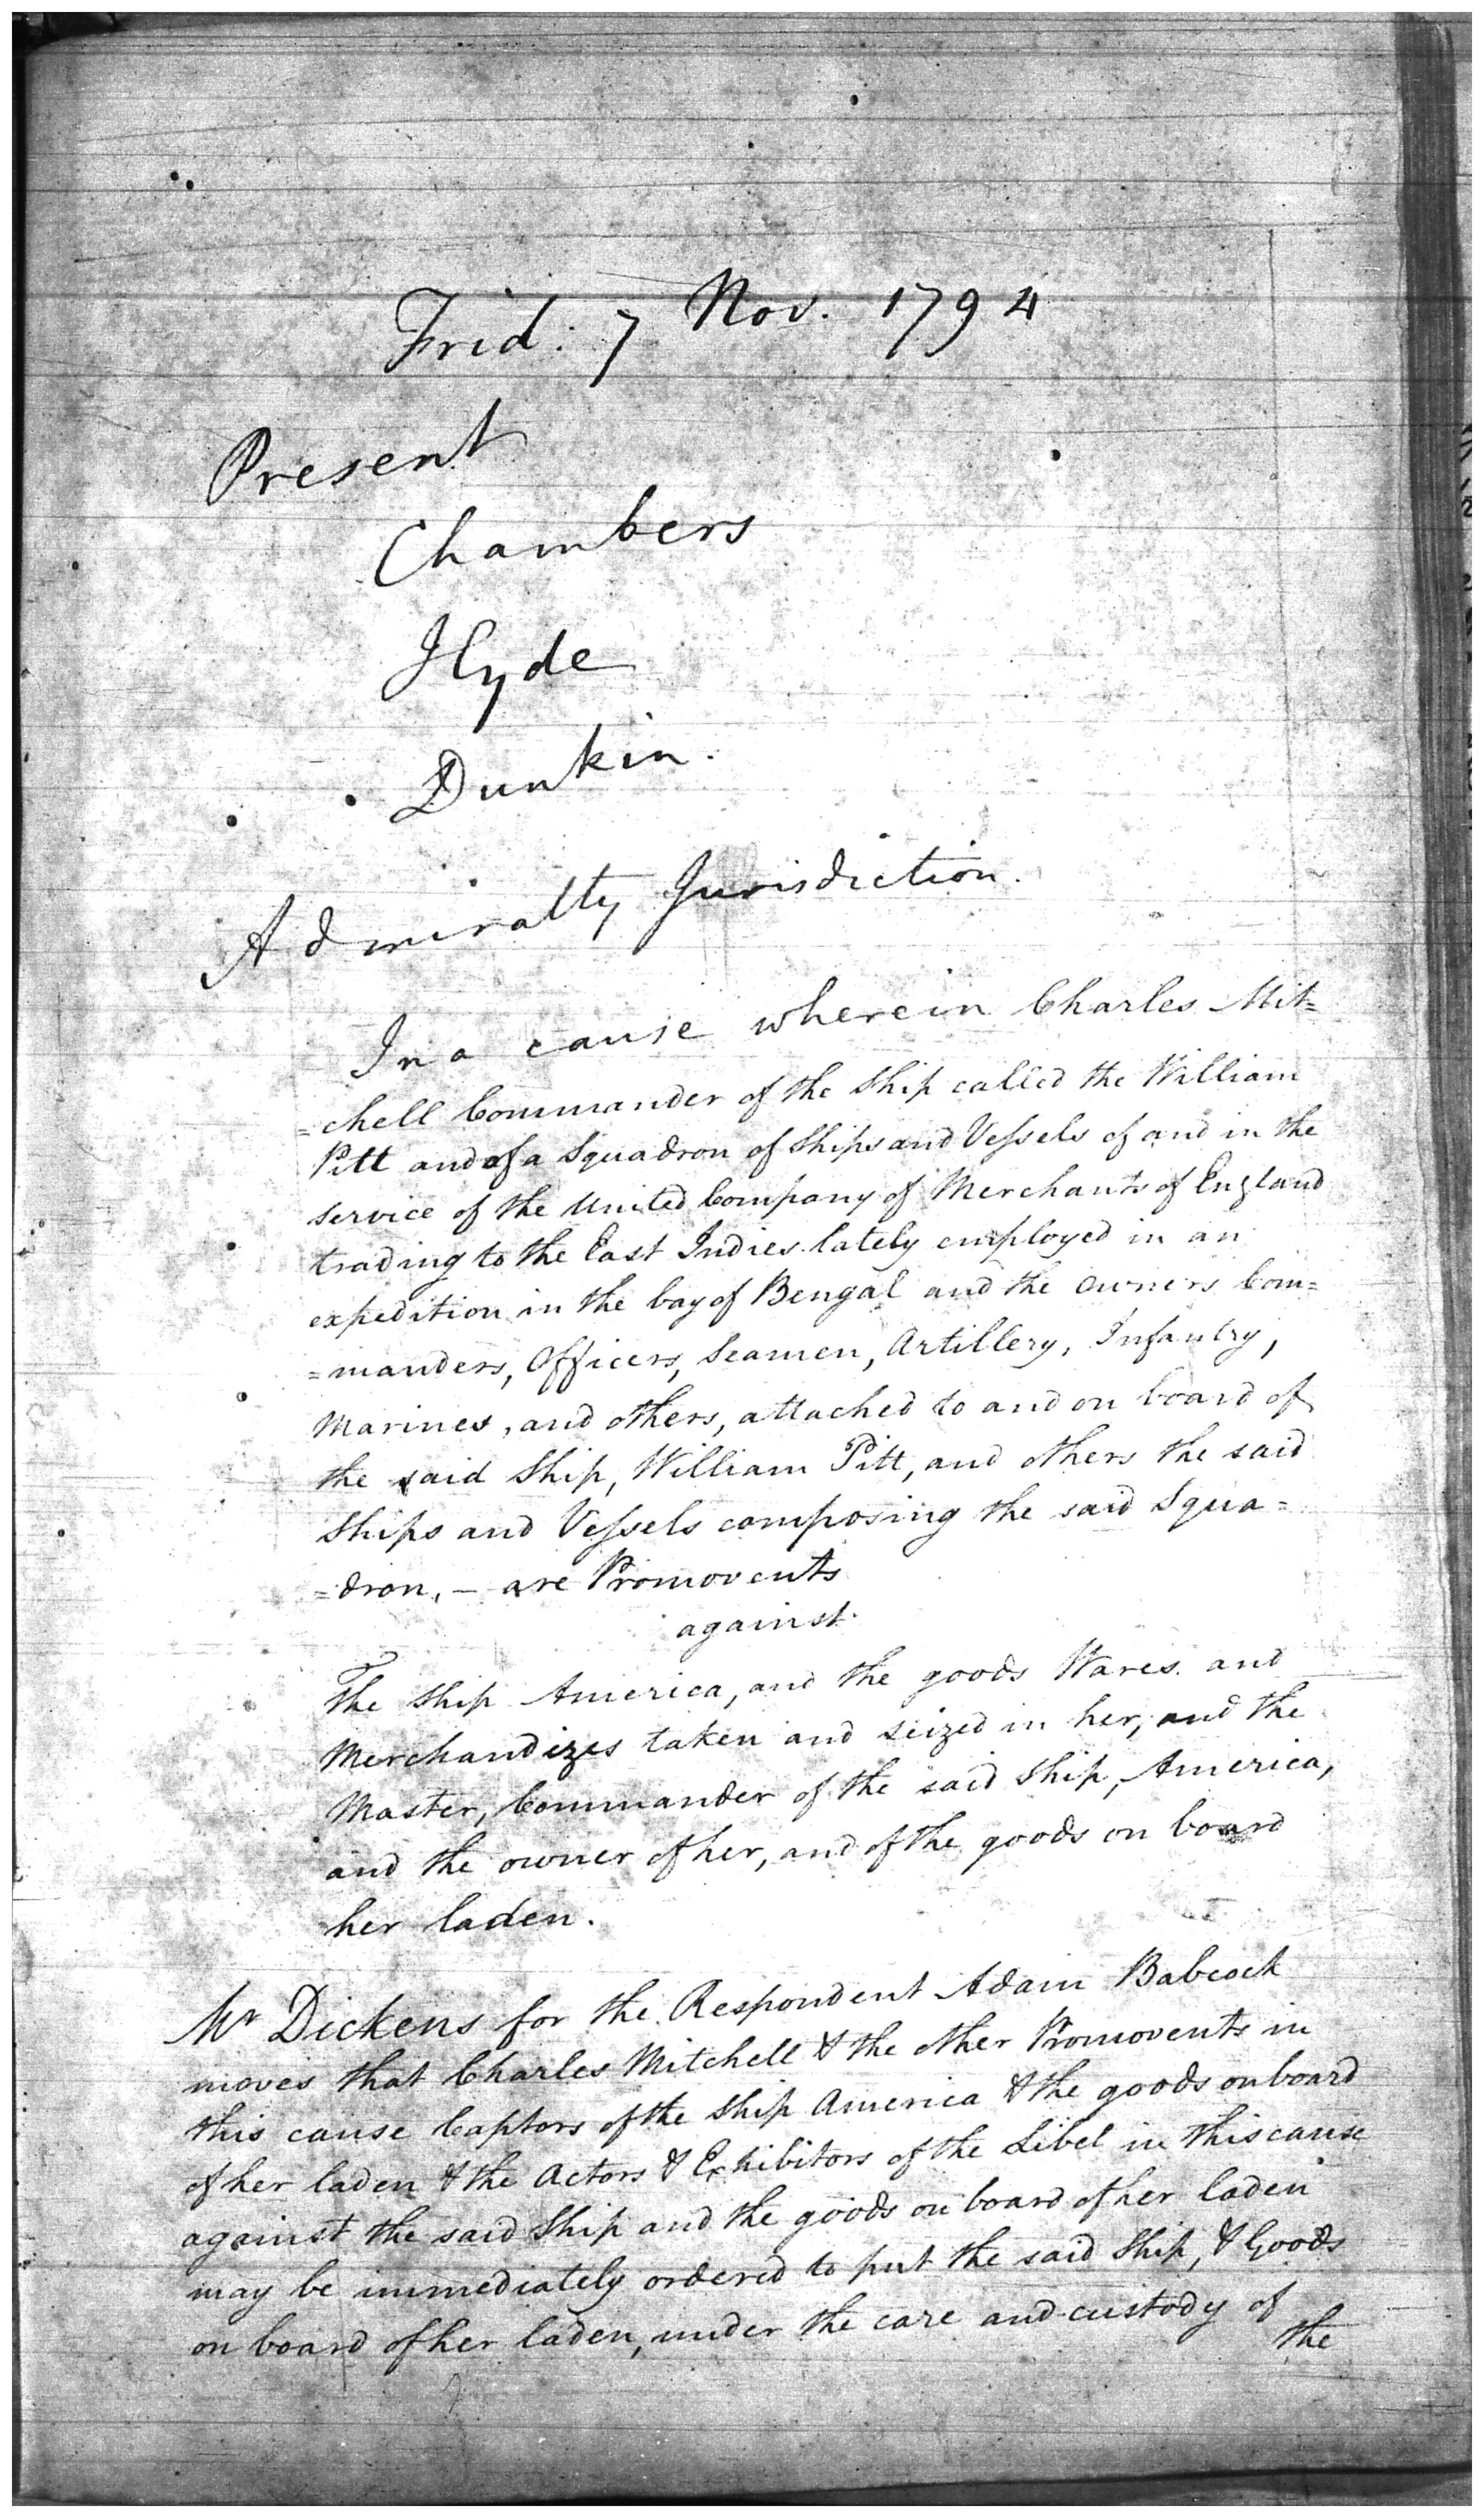 Frid: 7 Nov. 1794
Present
Chambers
Hyde
Dunkin.
Admiralty Jurisdiction.
In a cause wherein Charles Mit=
=chell Commander of the Ship called the William
Pitt and of a Squadron of Ships and Vessels of and in the
service of the United Company of Merchants of England
trading to the East Indies lately employed in an
expedition in the bay of Bengal and the owners Com=
=manders, Officers, Seamen, Artillery, Infantry,
Marines, and others, attached to and on board of
the said Ship, William Pitt, and others the said
Ships and Vessels composing the said Squa=
=dron, – are Promovents
against
The Ship America, and the goods Wares and
Merchandizes taken and seized in her, and the
Master, Commander of the said Ship, America,
and the owner of her, and of the goods on board
her laden.
Mr Dickens for the Respondent Adam Babcock
moves that Charles Mitchell & the other Promovents in
this cause Captors of the Ship America & the goods on board
of her laden & the Actors & Exhibitors of the Libel in this cause
against the said Ship and the goods on board of her laden
may be immediately ordered to put the said Ship, & Goods
on board of her laden, under the care and custody of
the